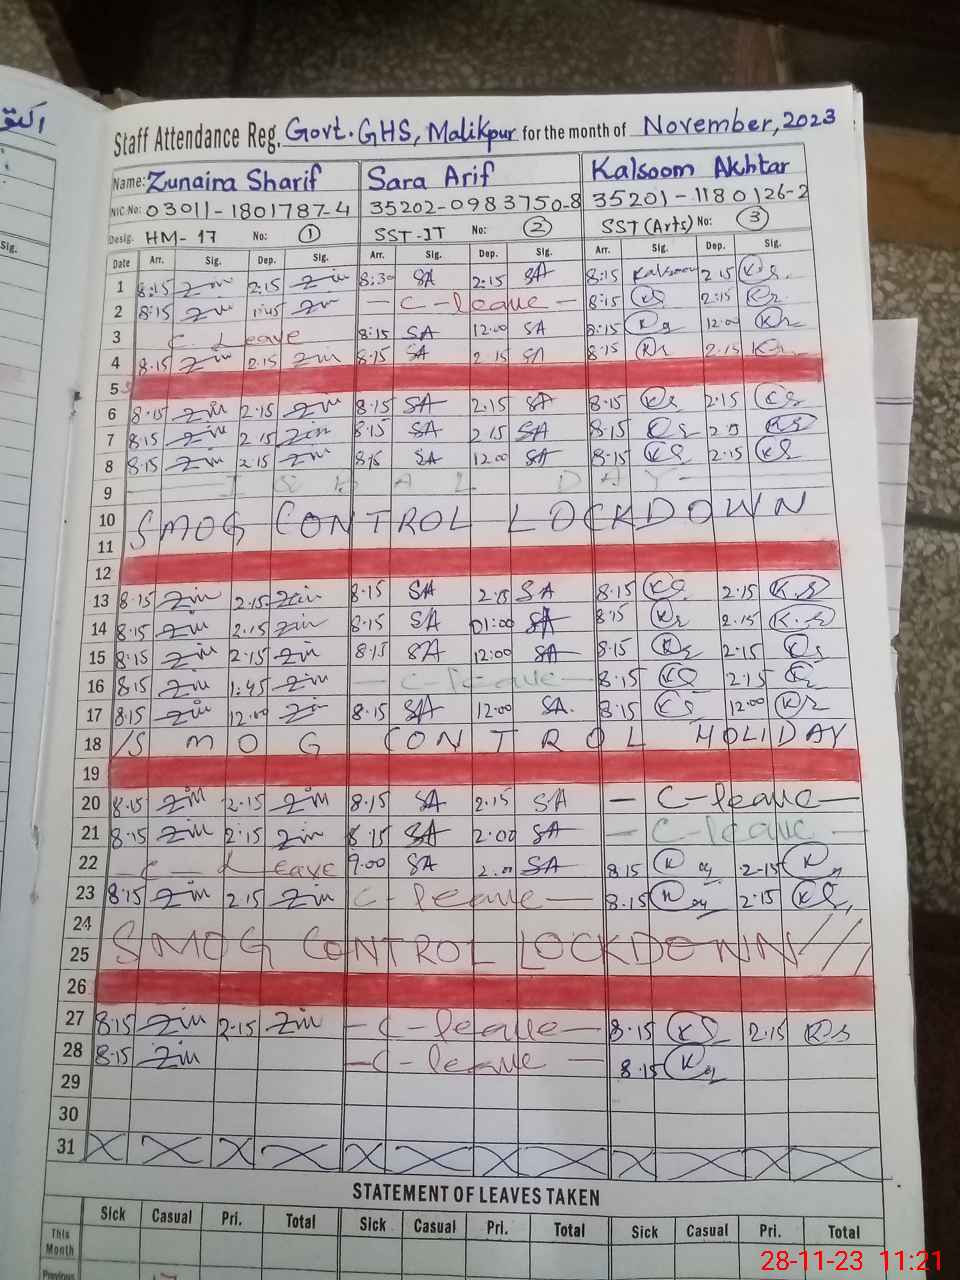 Staff Attendance Reg. Govt. GHS, Malikpur for the month of November, 2023
Name: Zunaira Sharif Sara Arif Kalsoom Akhtar
NIC No: 03011-1801787-4 35202-0983750-8 35201-1180126-2
Desig. HM-17 No: 1 SST-IT No: 2 SST (Arts) No: 3
Date Arr. Sig. Dep. Sig. Arr. Sig. Dep. Sig. Arr. Sig. Dep. Sig.
1 8:15 Zin 2:15 Zin 8:30 SA 2:15 SA 8:15 Kalsoom 2:15 Ks
2 8:15 Zin 1:45 Zin - C-leave - 8:15 Ks 2:15 Ks
3 C Leave 8:15 SA 12:00 SA 8:15 Ks 12:00 Ks
4 8.15 Zin 2.15 Zin 8.15 SA 2.15 SA 8.15 Ks 2.15 Ks
5
6 8.15 Zin 2.15 Zin 8.15 SA 2.15 SA 8.15 Ks 2.15 Ks
7 8.15 Zin 2.15 Zin 8.15 SA 2.15 SA 8.15 Ks Ks
8 8.15 Zin 2.15 Zin 8.15 SA 12.00 SA 8.15 Ks 2.15 Ks
9 IQBAL DAY
10 SMOG CONTROL LOCKDOWN
11
12
13 8.15 Zin 2.15 Zin 8.15 SA 2.15 SA 8.15 Ks 2.15 K.s
14 8.15 Zin 2.15 Zin 8.15 SA 01:00 SA 8.15 Ks 2.15 K.s
15 8.15 Zin 2.15 Zin 8.15 SA 12:00 SA 8.15 Ks 2.15 Ks
16 8.15 Zin 1:45 Zin - C-leave - 8.15 Ks 2.15 Ks
17 8.15 Zin 12.00 Zin 8.15 SA 12:00 SA. 8.15 Ks 12.00 Ks
18 SMOG CONTROL HOLIDAY
19
20 8.15 Zin 2.15 Zin 8.15 SA 2.15 SA - C-leave -
21 8.15 Zin 2.15 Zin 8.15 SA 2.00 SA - C-leave -
22 - C - Leave 9.00 SA 2.00 SA 8.15 K 2.15 K
23 8.15 Zin 2.15 Zin C-leave - 8.15 K 2.15 Ks
24
25 SMOG CONTROL LOCKDOWN //
26
27 8.15 Zin 2.15 Zin - C-leave - 8.15 Ks 2.15 Ks
28 8.15 Zin - C-leave - 8.15 K
29
30
31
STATEMENT OF LEAVES TAKEN
Sick Casual Pri. Total Sick Casual Pri. Total Sick Casual Pri. Total
This Month
Previous
28-11-23 11:21
Sig.